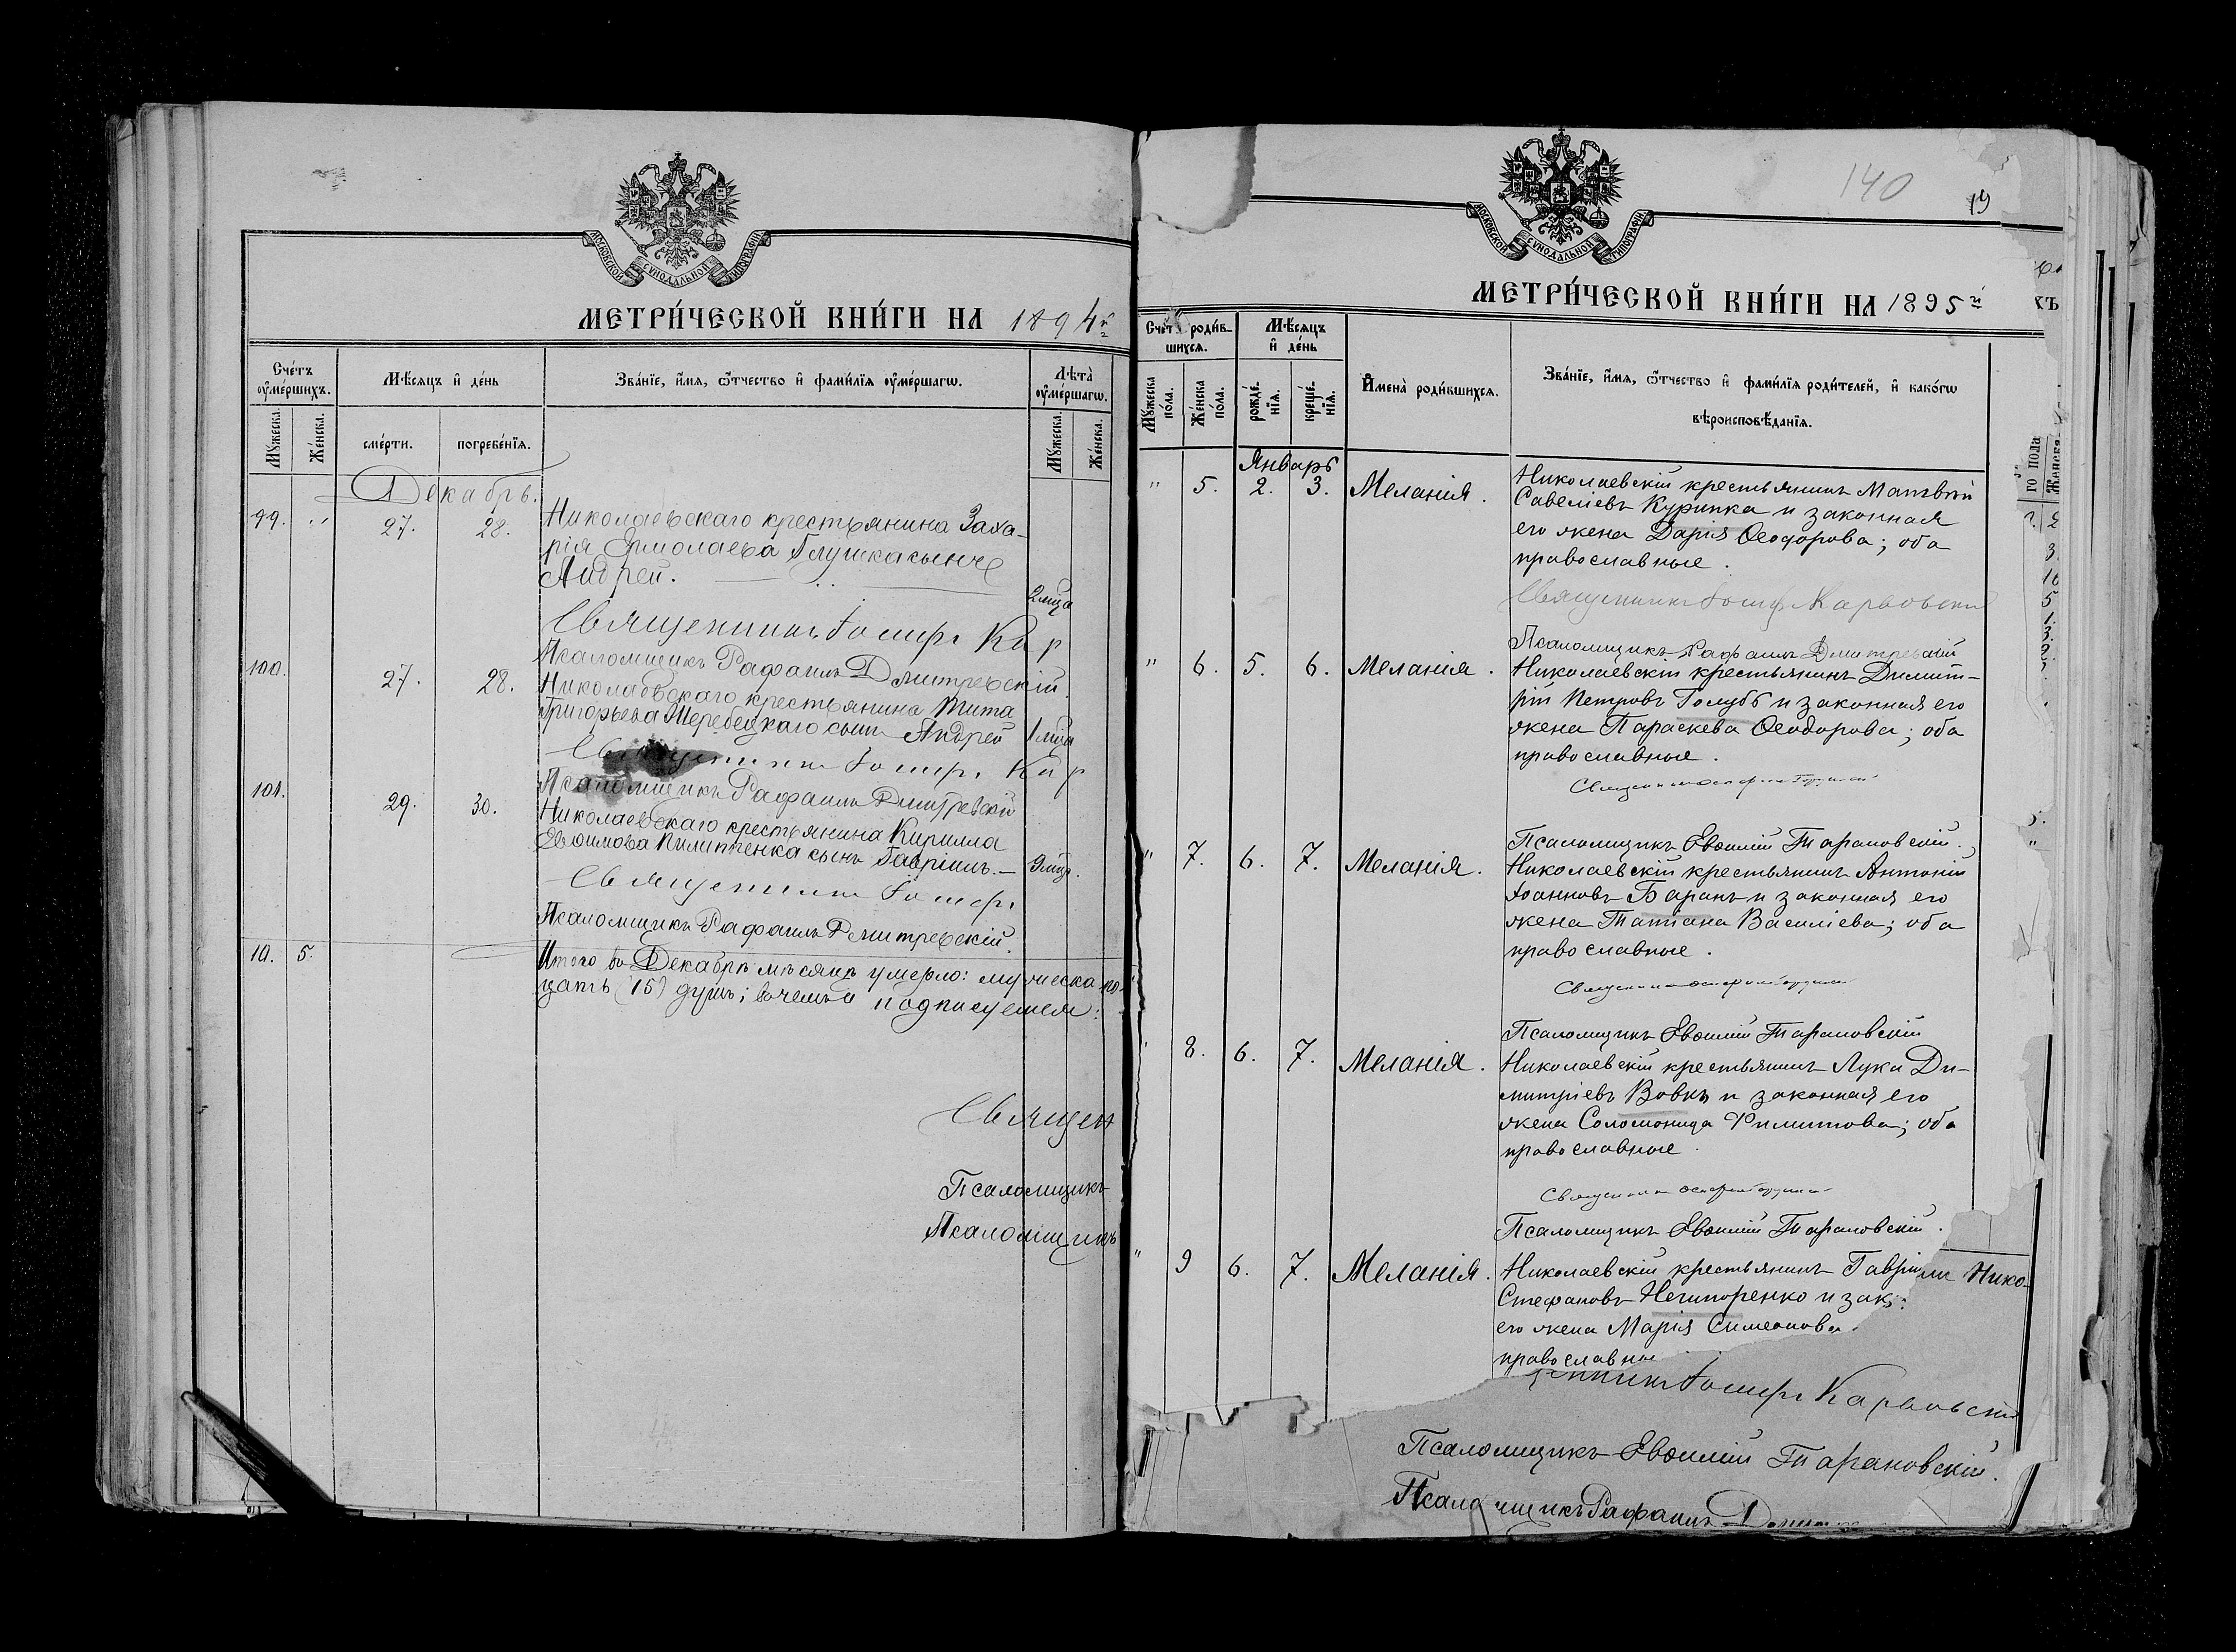 МОСКОВСКОЙ СѴНОДАЛЬНОЙ ТИПОГРАФІИ
МЕТРИ́ЧЕСКОЙ КНИ́ГИ НА 1894 й
Сче́тъ ᲂу҆ме́ршихъ.
Мѣ́сяцъ и҆ де́нь
Зва́нїе, и҆́мя, ѻ҆́тчество и҆ фами́лїя ᲂу҆ме́ршагѡ.
Лѣта̀ ᲂу҆ме́ршагѡ.
Мꙋ́жеска.
Же́нска.
сме́рти.
погребе́нїя.
Мꙋ́жеска.
Же́нска.
Декабрь.
99. " 27. 28. Николаевскаго крестьянина Заха-
рія Ермолаева Глушка сынъ
Андрей. 2 мца
Священникъ Іосифъ Кар
Псаломщикъ Рафаилъ Дмитревскій.
100. 27. 28. Николаевскаго крестьянина Тита
Григорьева Жеребецкаго сынъ Андрей 1 мца
Священникъ Іосифъ Кар
Псаломщикъ Рафаилъ Дмитревскій
101. 29. 30. Николаевскаго крестьянина Кирилла
Евѳимова Пилипенка сынъ Гавріилъ. —
Священникъ Іосифъ
Псаломщикъ Рафаилъ Дмитревскій.
10. 5. Итого въ Декабрѣ мѣсяцѣ умерло: мужеска по-
цать (15) душъ; въ чемъ и подписуемся:
Священ
Псаломщикъ
Псаломщикъ
140
19
МОСКОВСКОЙ СѴНОДАЛЬНОЙ ТИПОГРАФІИ
МЕТРИ́ЧЕСКОЙ КНИ́ГИ НА 1895 й
хъ
Сче́тъ роди́вшихся.
Мѣ́сяцъ и҆ де́нь
И҆мена̀ роди́вшихся.
Зва́нїе, и҆́мя, ѻ҆́тчество и҆ фами́лїя роди́телей, и҆ како́гѡ
вѣроисповѣ́данїя.
Мꙋ́жеска по́ла.
Же́нска по́ла.
рожде́нїя.
креще́нїя.
го пола
Женска
Январь
" 5. 2. 3. Меланія. Николаевскій крестьянинъ Матвѣй
Савеліевъ Курипка и законная
его жена Дарія Ѳеодорова; оба
православные.
Священникъ Іосифъ Карвовскі
Псаломщикъ Рафаилъ Дмитревскій
" 6. 5. 6. Меланія. Николаевскій крестьянинъ Димит-
рій Петровъ Голубъ и законная его
жена Параскева Ѳеодорова; оба
православные.
Священникъ
Псаломщикъ Евѳимій Тарановскій.
" 7. 6. 7. Меланія. Николаевскій крестьянинъ Антоній
Іоанновъ Баранъ и законная его
жена Татіана Василіева; оба
православные.
Священникъ
Псаломщикъ Евѳимій Тарановскій
" 8. 6. 7. Меланія. Николаевскій крестьянинъ Лука Ди-
митріевъ Вовкъ и законная его
жена Соломонида Филипова; оба
православные.
Священникъ
Псаломщикъ Евѳимій Тарановскій.
" 9 6. 7. Меланія. Николаевскій крестьянинъ Гаврі
Нико-
Стефановъ Нечипоренко и зак
его жена Марія Симеонова
православны
енникъ Іосифъ Карвовскі
Псаломщикъ Евѳимій Тарановскій.
Псаломщикъ Рафаилъ